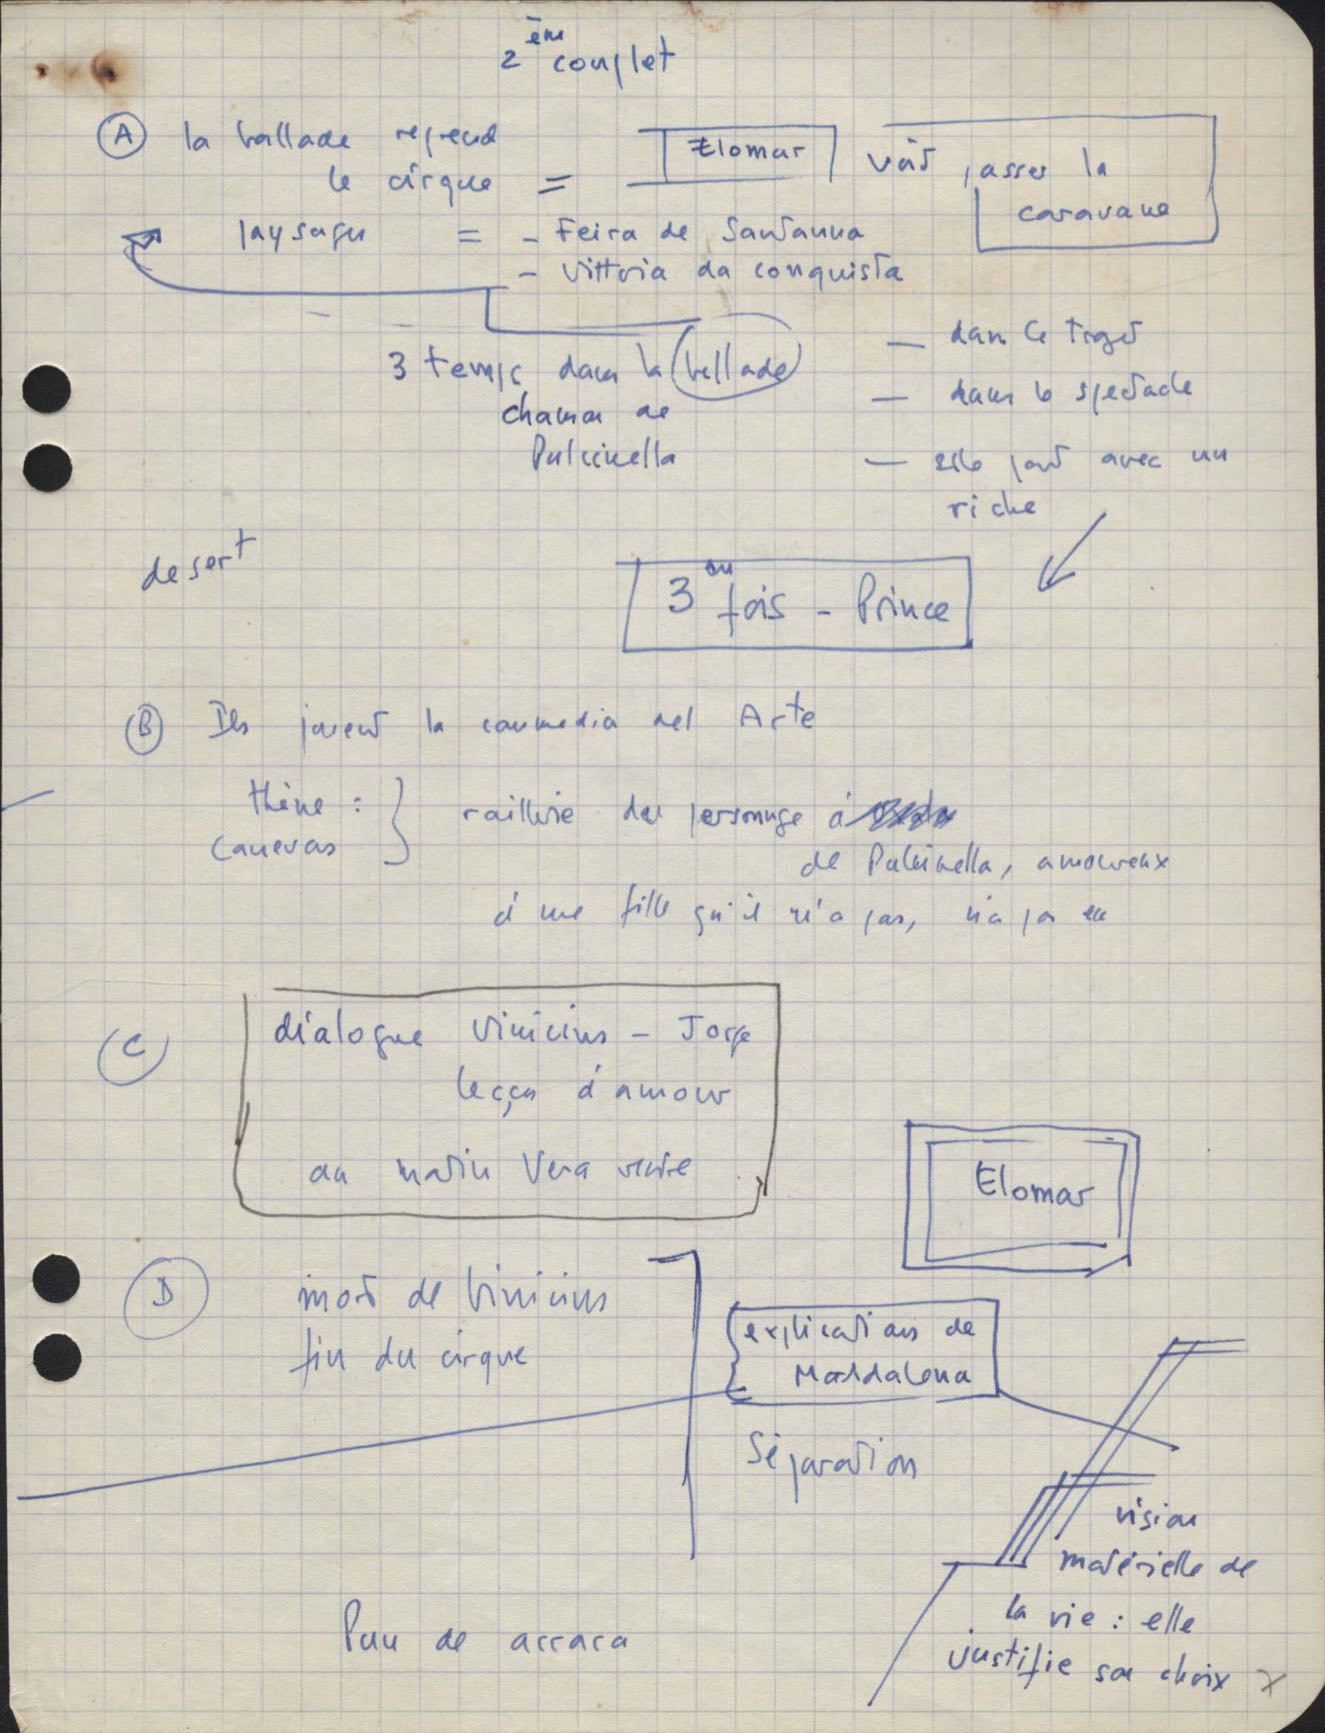 2ème couplet
A la ballade reprend
le cirque = Elomar voit passer la
caravane
paysages = - Feira de Santanna
- Vittoria da conquista
3 temps dans la ballade
chanson de
Pulcinella
— dans le trajet
— dans le spectacle
— elle part avec un
riche
desert
3em fois - Prince
B Ils jouent la commedia del Arte
thème :
canevas
raillerie des personnage
de Pulcinella, amoureux
d'une fille qu'il n'a pas, n'a pas eu
C dialogue Vinicius - Jorge
leçon d'amour
au matin Vera
Elomar
D mort de Vinicius
fin du cirque
explications de
Maddalena
Séparation
vision
matérielle de
la vie : elle
justifie son choix
de arrara